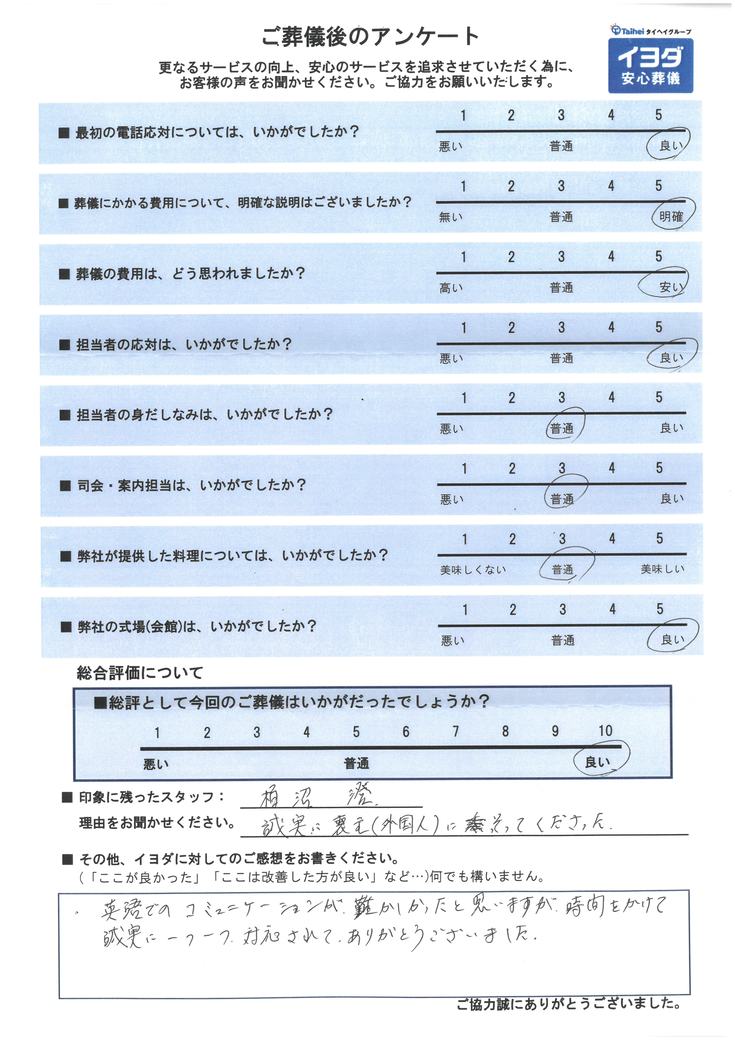 ご葬儀後のアンケート
Taihei タイヘイグループ
イヨダ
安心葬儀
更なるサービスの向上、安心のサービスを追求させていただく為に、
お客様の声をお聞かせください。ご協力をお願いいたします。
■ 最初の電話応対については、いかがでしたか?
1 2 3 4 5
悪い 普通 良い
■ 葬儀にかかる費用について、明確な説明はございましたか?
1 2 3 4 5
無い 普通 明確
■ 葬儀の費用は、どう思われましたか?
1 2 3 4 5
高い 普通 安い
■ 担当者の応対は、いかがでしたか?
1 2 3 4 5
悪い 普通 良い
■ 担当者の身だしなみは、いかがでしたか?
1 2 3 4 5
悪い 普通 良い
■ 司会・案内担当は、いかがでしたか?
1 2 3 4 5
悪い 普通 良い
■ 弊社が提供した料理については、いかがでしたか?
1 2 3 4 5
美味しくない 普通 美味しい
■ 弊社の式場(会館)は、いかがでしたか?
1 2 3 4 5
悪い 普通 良い
総合評価について
■総評として今回のご葬儀はいかがだったでしょうか?
1 2 3 4 5 6 7 8 9 10
悪い 普通 良い
■ 印象に残ったスタッフ: 柏沼 澄
理由をお聞かせください。 誠実に喪主(外国人)に そってくださった.
■ その他、イヨダに対してのご感想をお書きください。
(「ここが良かった」「ここは改善した方が良い」など…)何でも構いません。
・ 英語でのコミュニケーションが、難かしかったと思いますが、時間をかけて
誠実に一つ一つ、対応されて、ありがとうございました.
ご協力誠にありがとうございました。